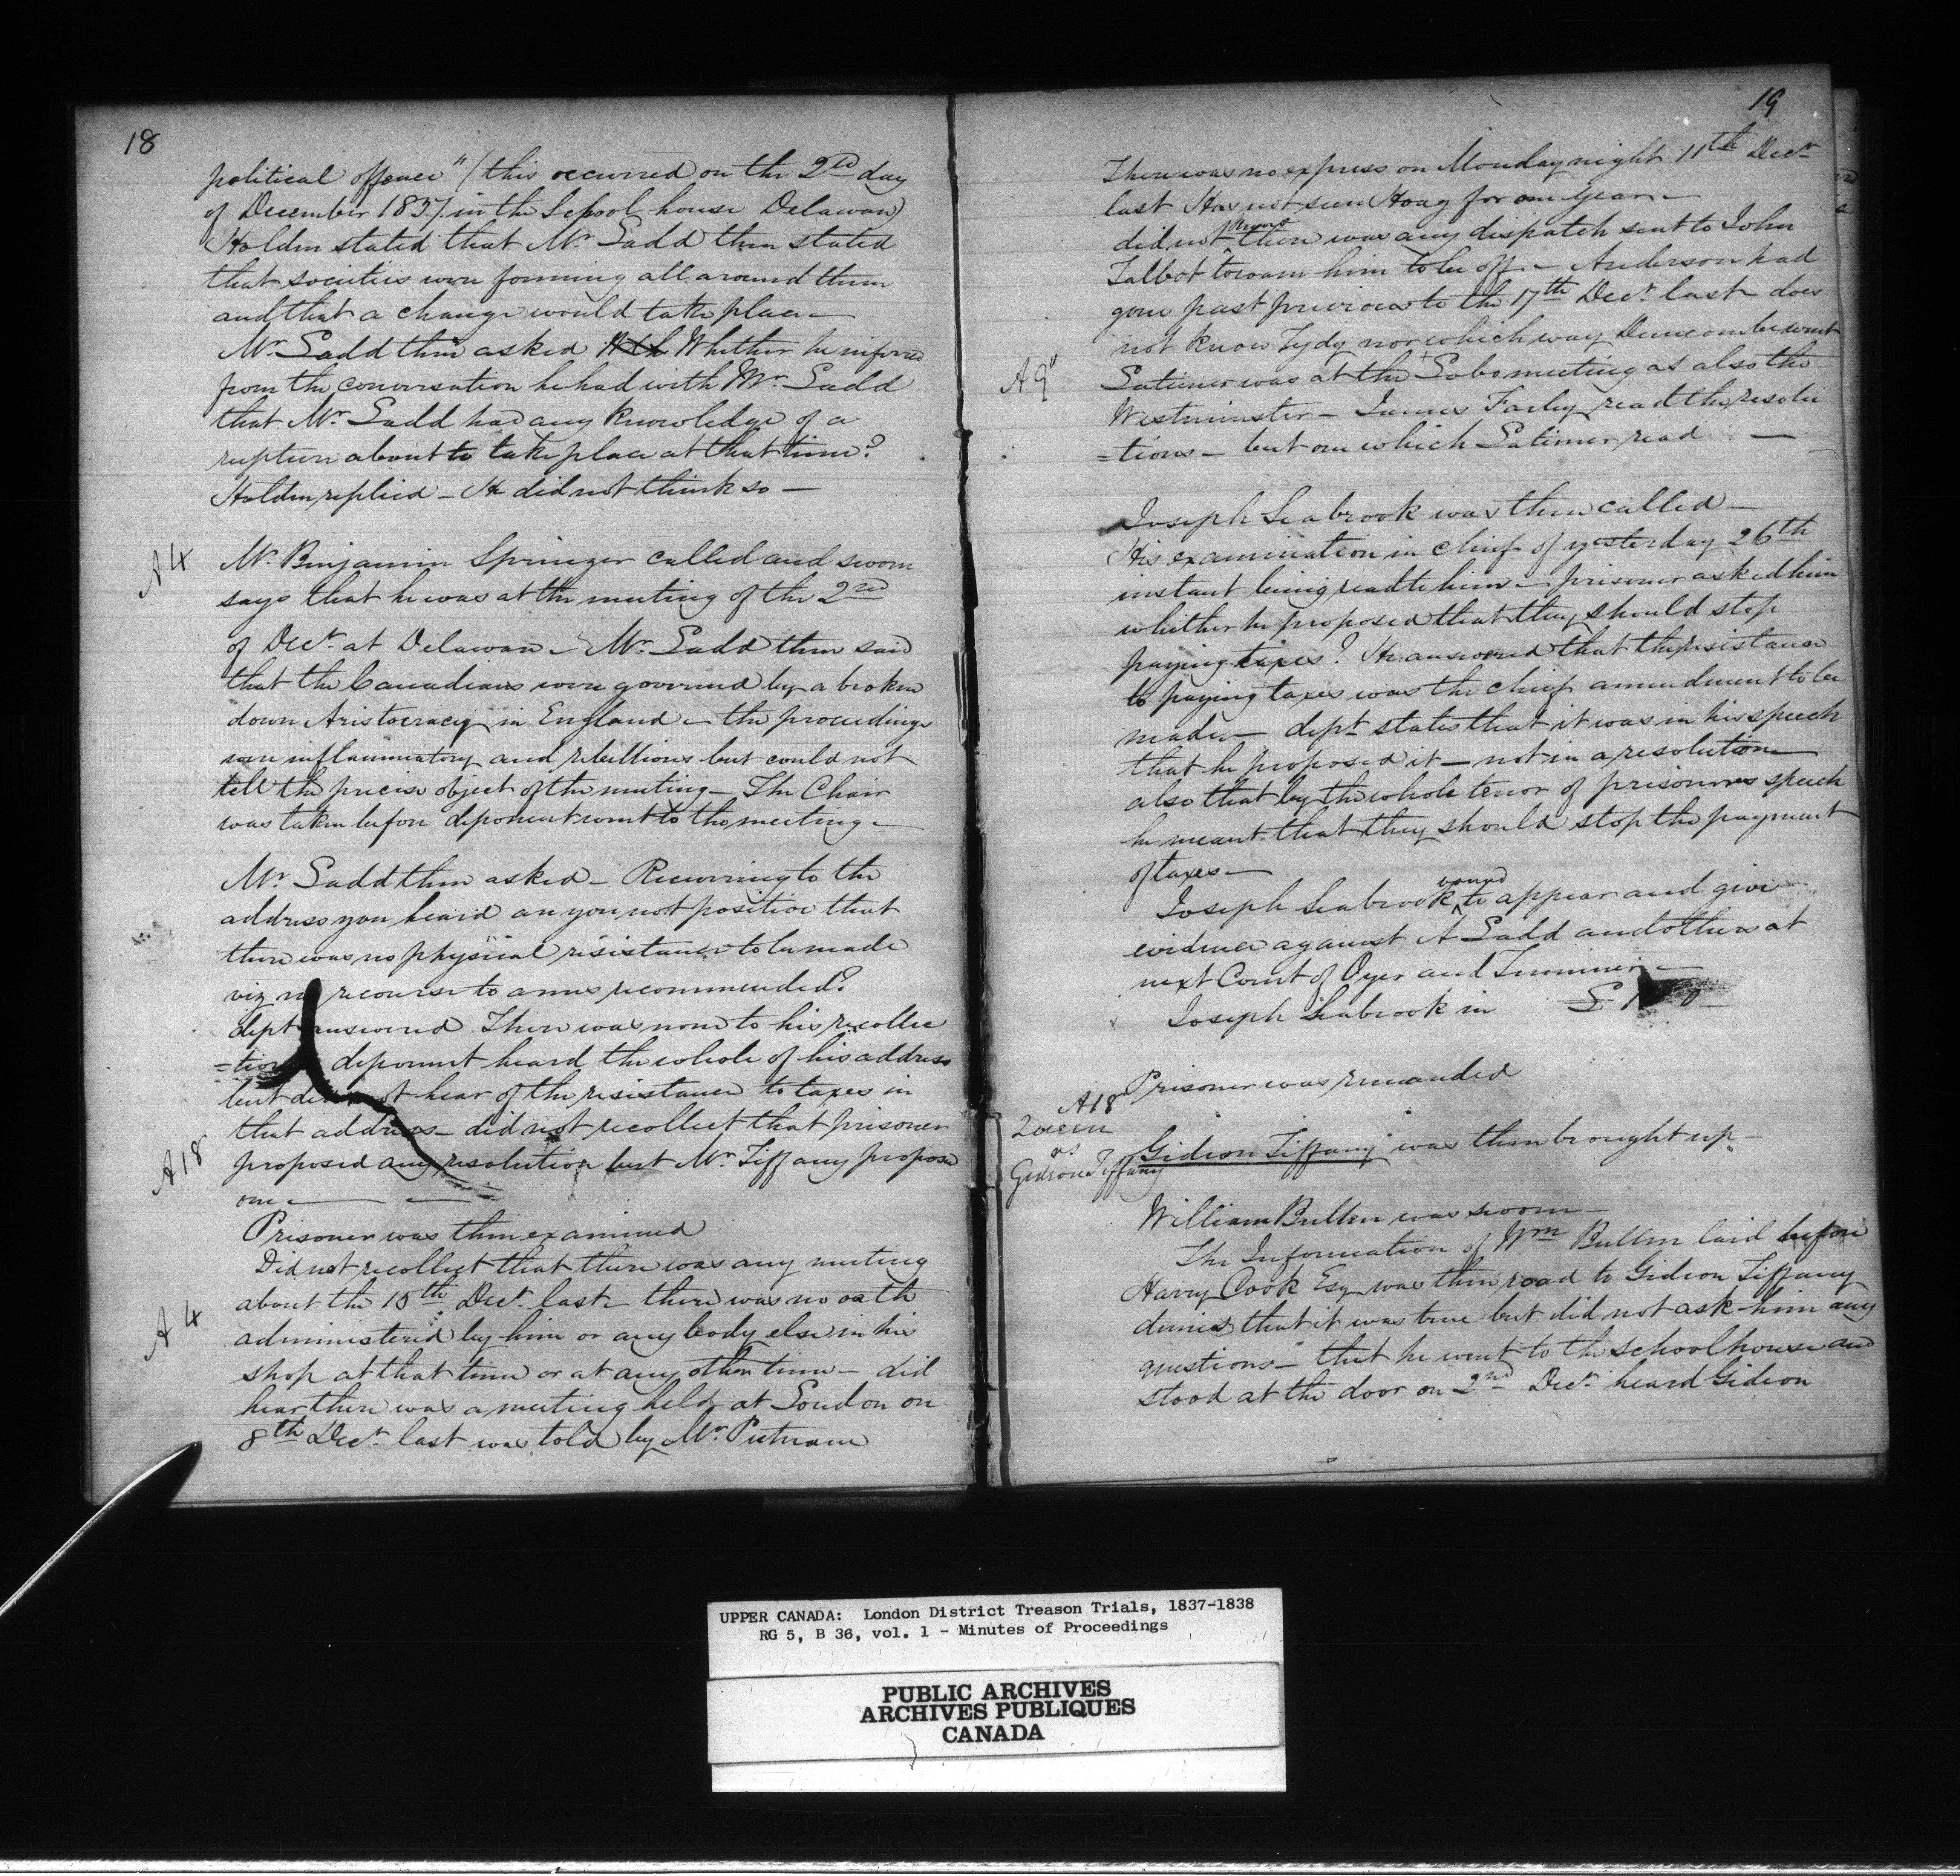 18
political offence" (this occurred on the 2nd day
of December 1837 in the School house Delaware)
Holden stated that Mr Ladd then stated
that societies were forming all around them
and that a change would take place —
Mr Ladd then asked Whether he inferred
from the conversation he had with Mr Ladd
that Mr Ladd had any knowledge of a
rupture about to take place at that time?
Holden replied — He did not think so —
A 4
Mr Benjamin Springer called and sworn
says that he was at the meeting of the 2nd
of Decr at Delaware — Mr Ladd then said
that the Canadians were governed by a broken
down Aristocracy in England — the proceedings
were inflammatory and rebellious but could not
tell the precise object of the meeting — The Chair
was taken before deponent went to the meeting —
Mr Ladd then asked — Recurring to the
address you heard are you not positive that
there was no physical resistance to be made
viz no recourse to arms recommended?
dept answered There was none to his recollec
=tion deponent heard the whole of his address
but did not hear of the resistance to taxes in
that address — did not recollect that prisoner
A 18
proposed any resolution but Mr Tiffany proposed
one —
Prisoner was then examined
Did not recollect that there was any meeting
about the 15th Decr last — there was no oath
A 4
administered by him or any body else in his
shop at that time or at any other time — did
hear there was a meeting held at London on
8th Decr last was told by Mr Putnam
19
There was no express on Monday night 11th Decr
last Has not seen Hoag for one year —
did not know there was any dispatch sent to John
Talbot to warn him to be off — Anderson had
gone past previous to the 17th Decr last does
not know Tydy nor which way Duncombe went
A 9"
Latimer was at the Lobo meeting as also the
Westminster — James Farley read the resolu
=tions — but one which Latimer read —
Joseph Seabrook was then called —
His examination in chief of yesterday 26th
instant being read to him — prisoner asked him
whether he proposed that they should stop
paying taxes? He answered that the resistance
to paying taxes was the chief amendment to be
made — dept states that it was in his speech
that he proposed it — not in a resolution —
also that by the whole tenor of prisoners speech
he meant that they should stop the payment
of taxes —
Joseph Seabrook bound to appear and give
evidence against A Ladd and others at
next Court of Oyer and Terminer —
Joseph Seabrook in £
Prisoner was remanded
A 18
Queen
vs
Gideon Tiffany
Gideon Tiffany was then brought up —
William Bullen was sworn —
The Information of Wm Bullen laid before
Harry Cook Esq was then read to Gideon Tiffany
denies that it was true but did not ask him any
questions — that he went to the schoolhouse and
stood at the door on 2nd Decr heard Gideon
UPPER CANADA: London District Treason Trials, 1837-1838
RG 5, B 36, vol. 1 - Minutes of Proceedings
PUBLIC ARCHIVES
ARCHIVES PUBLIQUES
CANADA